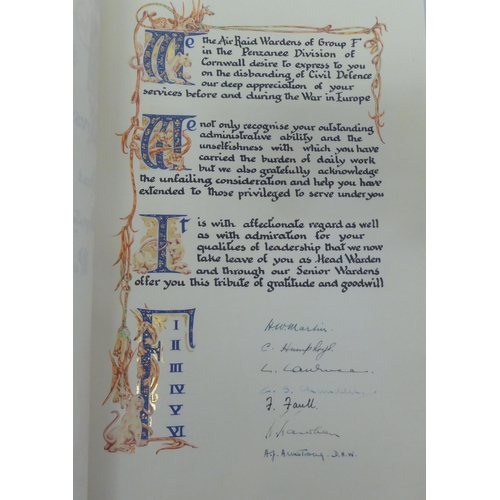 We the Air Raid Wardens of Group F
in the Penzance Division of
Cornwall desire to express to you
on the disbanding of Civil Defence
our deep appreciation of your
services before and during the War in Europe
We not only recognise your outstanding
administrative ability and the
unselfishness with which you have
carried the burden of daily work
but we also gratefully acknowledge
the unfailing consideration and help you have
extended to those privileged to serve under you
It is with affectionate regard as well
as with admiration for your
qualities of leadership that we now
take leave of you as Head Warden
and through our Senior Wardens
offer you this tribute of gratitude and goodwill
F
I H W Martin.
II C. Humphrys.
III
IV
V F. Faull
VI
A.G. Armstrong. D.H.W.